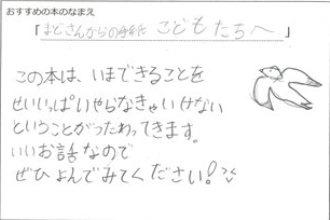 おすすめの本のなまえ
「まどさんからの手紙 こどもたちへ」
この本は、いまできることを
せいいっぱいやらなきゃいけない
ということがつたわってきます。
いいお話なので
ぜひよんでみてください!